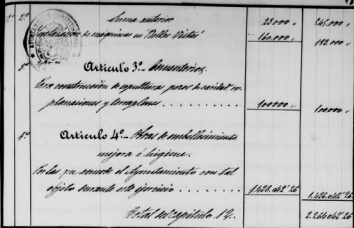 Suma anterior 23.000 „ 245.000 „
Instalación de máquinas en "Bellas Vistas" 160.000 „ 183.000 „
Artículo 3º Cementerios.
Para construcción de sepulturas, pozos de caridad ex-
planaciones y terraplenes 100000 „ 100000 „
Artículo 4º Obras de embellecimiento
mejora é higiene.
Por las que acuerde el Ayuntamiento con tal
objeto durante este ejercicio 26
Total del capítulo 26